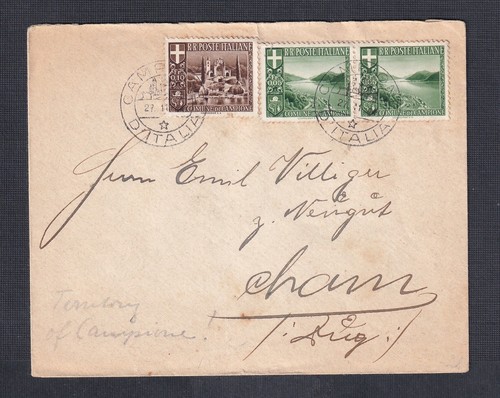 R.R. POSTE ITALIANE
COMUNE DI CAMPIONE
R.R. POSTE ITALIANE
COMUNE DI CAMPIONE
R.R. POSTE ITALIANE
COMUNE DI CAMPIONE
D'ITALIA
D'ITALIA
Herrn Emil Villiger
z. Neugut
Cham
/: Zug :/
Territory
of Campione!